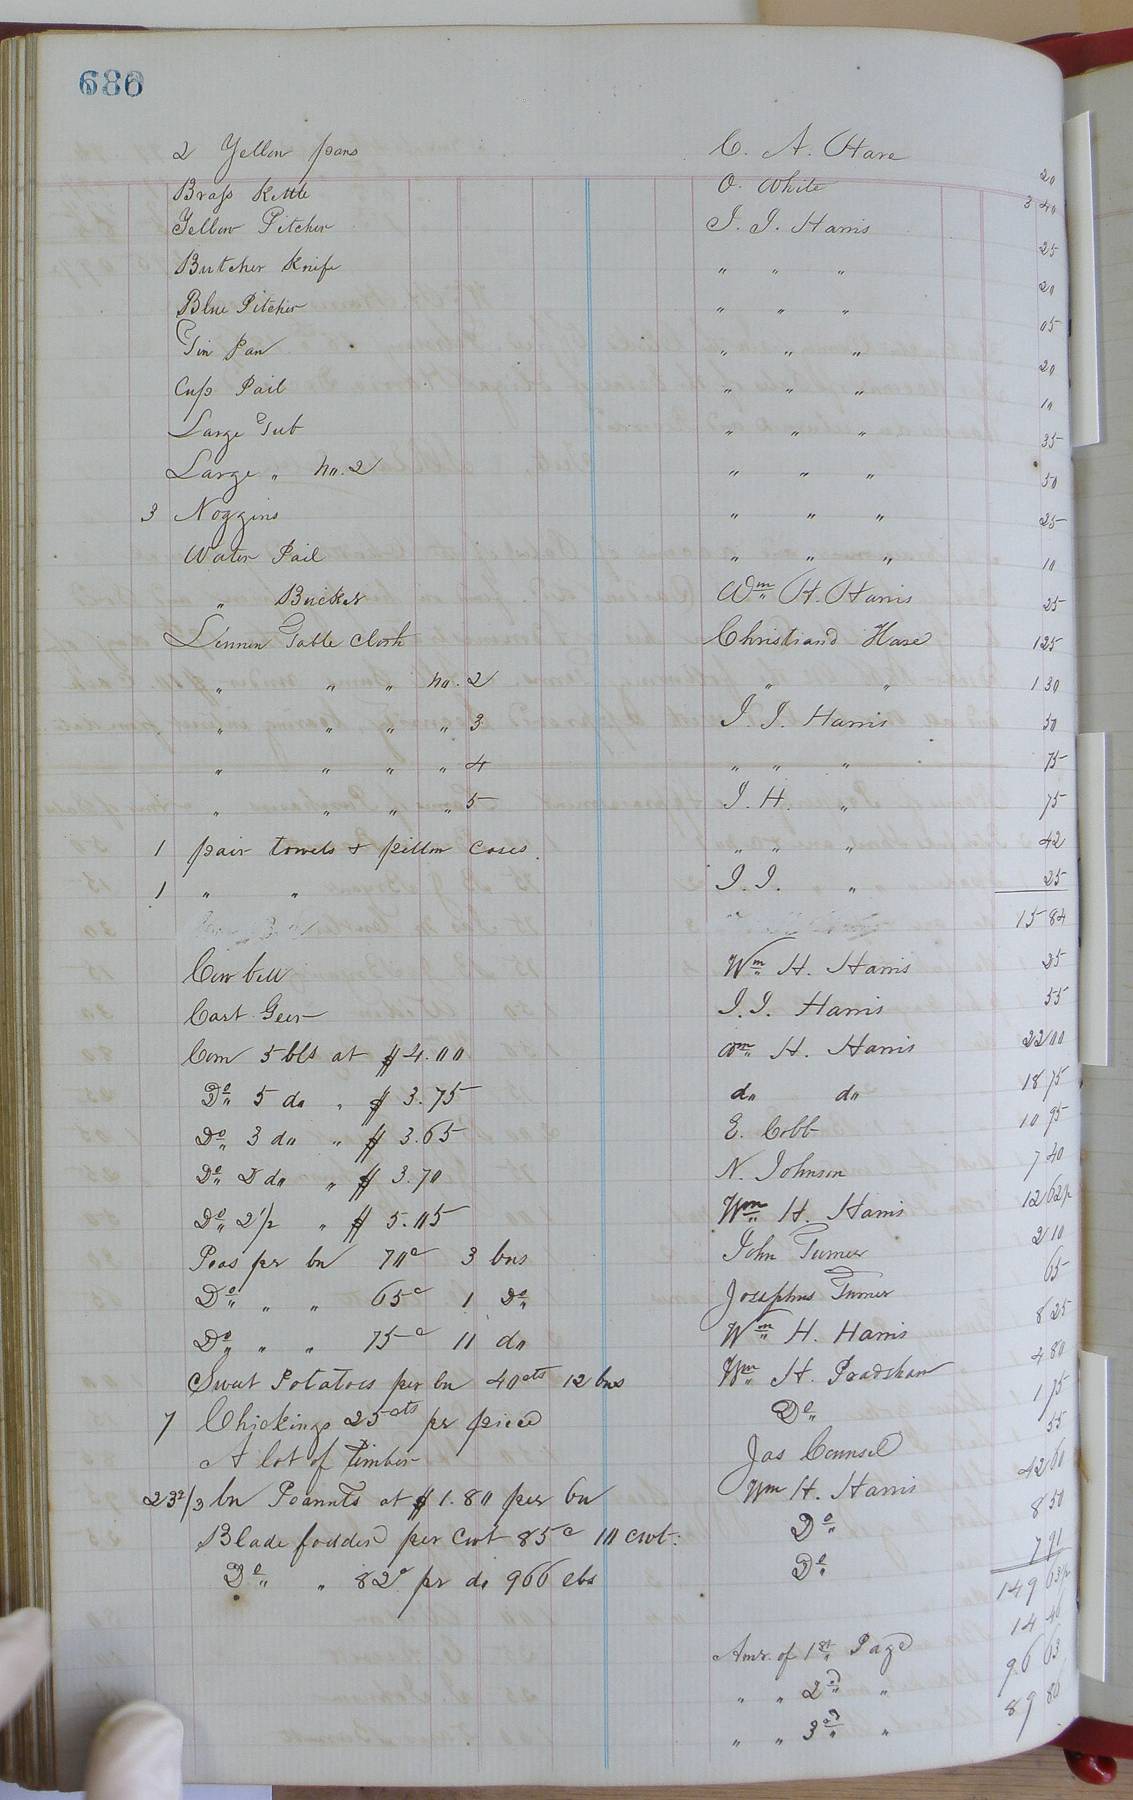 686
2 Yellow pans C. A. Hare 20
Brass Kettle O. White 3 40
Yellow Pitcher J. J. Harris 25
Butcher Knife " " " 20
Blue Pitcher " " " 05
Tin Pan " " " 20
Cup Pail " " " 10
Large Tub " " " 35
Large " No. 2 " " " 50
3 Noggins " " " 25
Water Pail " " " 10
" Bucket Wm H. Harris 25
Linnen Table Cloth Christiand Hare 1 25
" " " No. 2 " " 1 30
" " " " 3 J. J. Harris 50
" " " " 4 " " " 75
" " " " 5 J. H. " 75
1 pair towels & pillow cases " " " 42
1 " " J. J. " 25
15 84
Cow bell Wm H. Harris 25
Cart Geer J. J. Harris 55
Corn 5 bls at $4.00 Wm H. Harris 22 00
Do 5 do " $ 3.75 do do 18 75
Do 3 do " $ 3.65 E. Cobb 10 95
Do 2 do " $ 3.70 N. Johnson 7 40
Do 2 1/2 " $ 5.05 Wm H. Harris 12 62 1/2
Peas per bu 70c 3 bus John Turner 2 10
Do " " 65c 1 Do Josephus Turner 65
Do " " 75c 11 do Wm H. Harris 8 25
Sweet Potatoes per bu 40cts 12 bus Wm H. Bradshaw 4 80
7 Chickings 25cts per piece Do 1 75
A lot of Timber Jas Counsel 55
23 2/3 bu Peanuts at $1.80 per bu Wm H. Harris 42 60
Blade fodder per cwt 85c 10 cwt. Do 8 50
Do " 82c per do 966 lbs Do 7 91
149 63 1/2
Amt. of 1st Page 14 40
" " 2nd " 96 63
" " 3rd " 89 86